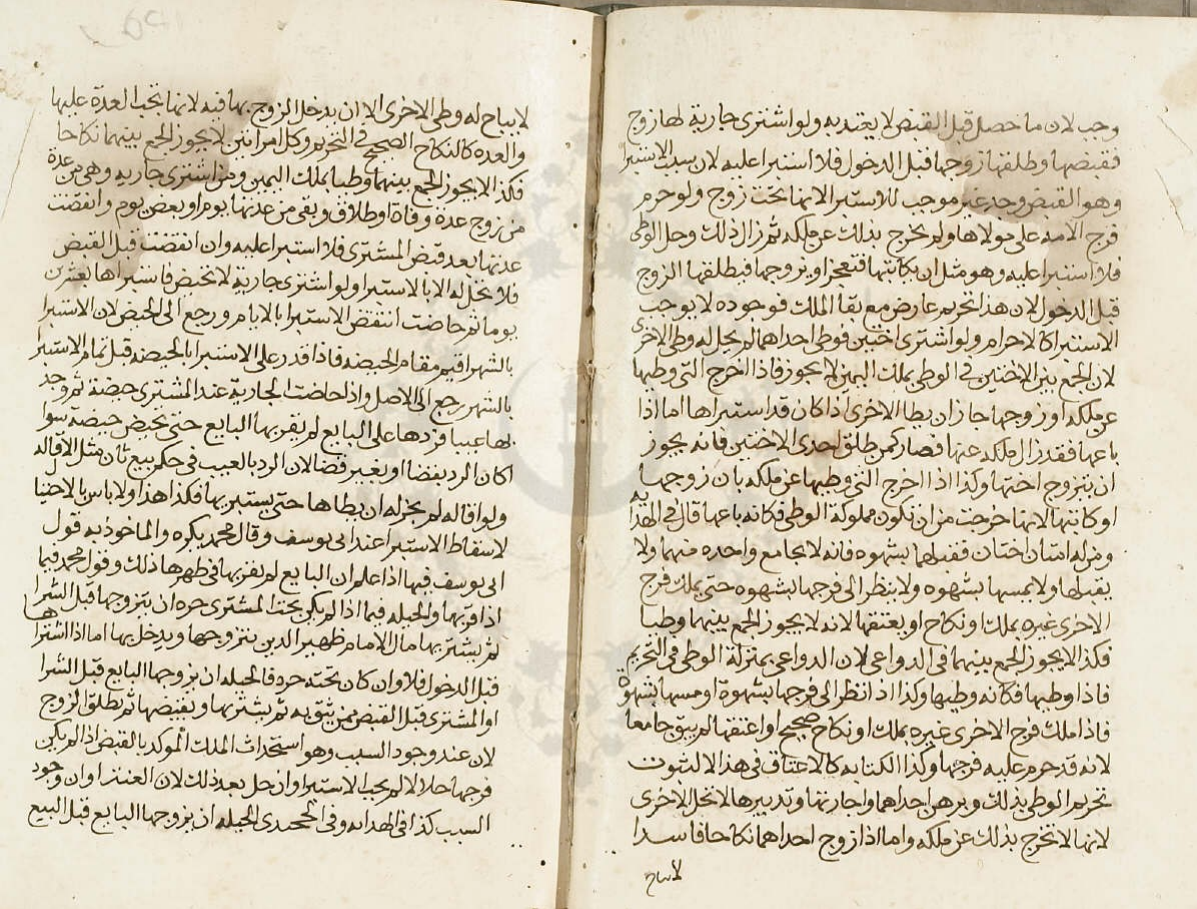 وجب لان ما حصل قبل القبض لا يعتد به ولو اشترى جارية لها زوج
فقبضها وطلقها زوجها قبل الدخول فلا استبرا عليه لان سبب الاستبرا
وهو القبض وجد غير موجب للاستبرا لانها تحت زوج ولو حرم
فرج الامه على مولاها ولم يخرج بذلك عن ملكه ثم زال ذلك وحل الوطى
فلا استبرا عليه وهو مثل ان يكاتبها فتعجز او يزوجها فيطلقها الزوج
قبل الدخول لان هذا تحريم عارض مع بقا الملك فوجوده لا يوجب
الاستبرا كالاحرام ولو اشترى اختين فوطى احداهما لم يحل له وطى الاخرى
لان الجمع بين الاختين في الوطى بملك اليمين لا يجوز فاذا اخرج التى وطيها
عن ملكه او زوجها جاز ان يطا الاخرى اذا كان قد استبراها اما اذا
باعها فقد زال ملكه عنها فصار كمن طلق احدى الاختين فانه يجوز
ان يتزوج اختها وكذا اذا اخرج التى وطيها عن ملكه بان زوجها
او كاتبها لانها خرجت من ان تكون مملوكة الوطى فكانه باعها قال في الهدايه
ومن له امتان اختان فقبلهما بشهوه فانه لا يجامع واحده منهما ولا
يقبلها ولا يمسها بشهوه ولا ينظر الى فرجها بشهوه حتى يملك فرج
الاخرى غيره بملك او نكاح او يعتقها لانه لا يجوز الجمع بينهما وطيا
فكذا لا يجوز الجمع بينهما في الدواعى لان الدواعى بمنزلة الوطى في التحريم
فاذا وطيها فكانه وطيها وكذا اذا نظر الى فرجها بشهوة او مسها بشهوة
فاذا ملك فرج الاخرى غيره بملك او نكاح صحيح او اعتقها لم يبق جامعا
لانه قد حرم عليه فرجها وكذا الكتابه كالاعتاق في هذا لثبوت
تحريم الوطى بذلك وبرهن احداهما واجارتها وتدبيرها لا تحل الاخرى
لانها لا تخرج بذلك عن ملكه واما اذا زوج احداهما نكاحا فاسدا
لا يباح
لا يباح له وطى الاخرى الا ان يدخل الزوج بها فيه لانها تجب العدة عليها
والعده كالنكاح الصحيح في التحريم وكل امراتين لا يجوز الجمع بينهما نكاحا
فكذا لا يجوز الجمع بينهما وطيا بملك اليمين ومن اشترى جاريه وهى من عدة
من زوج عدة وفاة او طلاق وبقى من عدتها يوم او بعض يوم وانقضت
عدتها بعد قبض المشترى فلا استبرا عليه وان انقضت قبل القبض
فلا تحل له الا بالاستبرا ولو اشترى جارية لا تحيض فاستبراها بعشرين
يوما ثم حاضت انتقض الاستبرا بالايام ورجع الى الحيض لان الاستبرا
بالشهر اقيم مقام الحيضه فاذا قدر على الاستبرا بالحيضه قبل تمام الاستبرا
بالشهر رجع الى الاصل واذا حاضت الجارية عند المشترى حيضة ثم وجد
بها عيبا فردها على البايع لم يقربها البايع حتى تحيض حيضة سوا
اكان الرد بقضا او بغير قضا لان الرد بالعيب في حكم بيع ثان مثل الاقاله
ولو اقاله لم يجز له ان يطاها حتى يستبريها فكذا هذا ولا باس بالاحتيال
لاسقاط الاستبرا عند ابى يوسف وقال محمد يكره والماخوذ به قول
ابى يوسف فيما اذا علم ان البايع لم يقربها في طهرها ذلك وقول محمد فيما
اذا قربها والحيله فيما اذا لم يكن تحت المشترى حره ان يتزوجها قبل الشرا
ثم يشتريها مال الامام ظهير الدين يتزوجها ويدخل بها اما اذا اشتراها
قبل الدخول فلا وان كان تحته حره فالحيله ان يزوجها البايع قبل الشرا
او المشترى قبل القبض ممن يثق به ثم يشتريها ويقبضها ثم يطلق الزوج
لان عند وجود السبب وهو استحداث الملك المؤكد بالقبض اذا لم يكن
فرجها حلالا لم يجب الاستبرا وان حل بعد ذلك لان المعتبر اوان وجود
السبب كذا في الهدايه وفى الخجندى الحيله ان يزوجها البايع قبل البيع